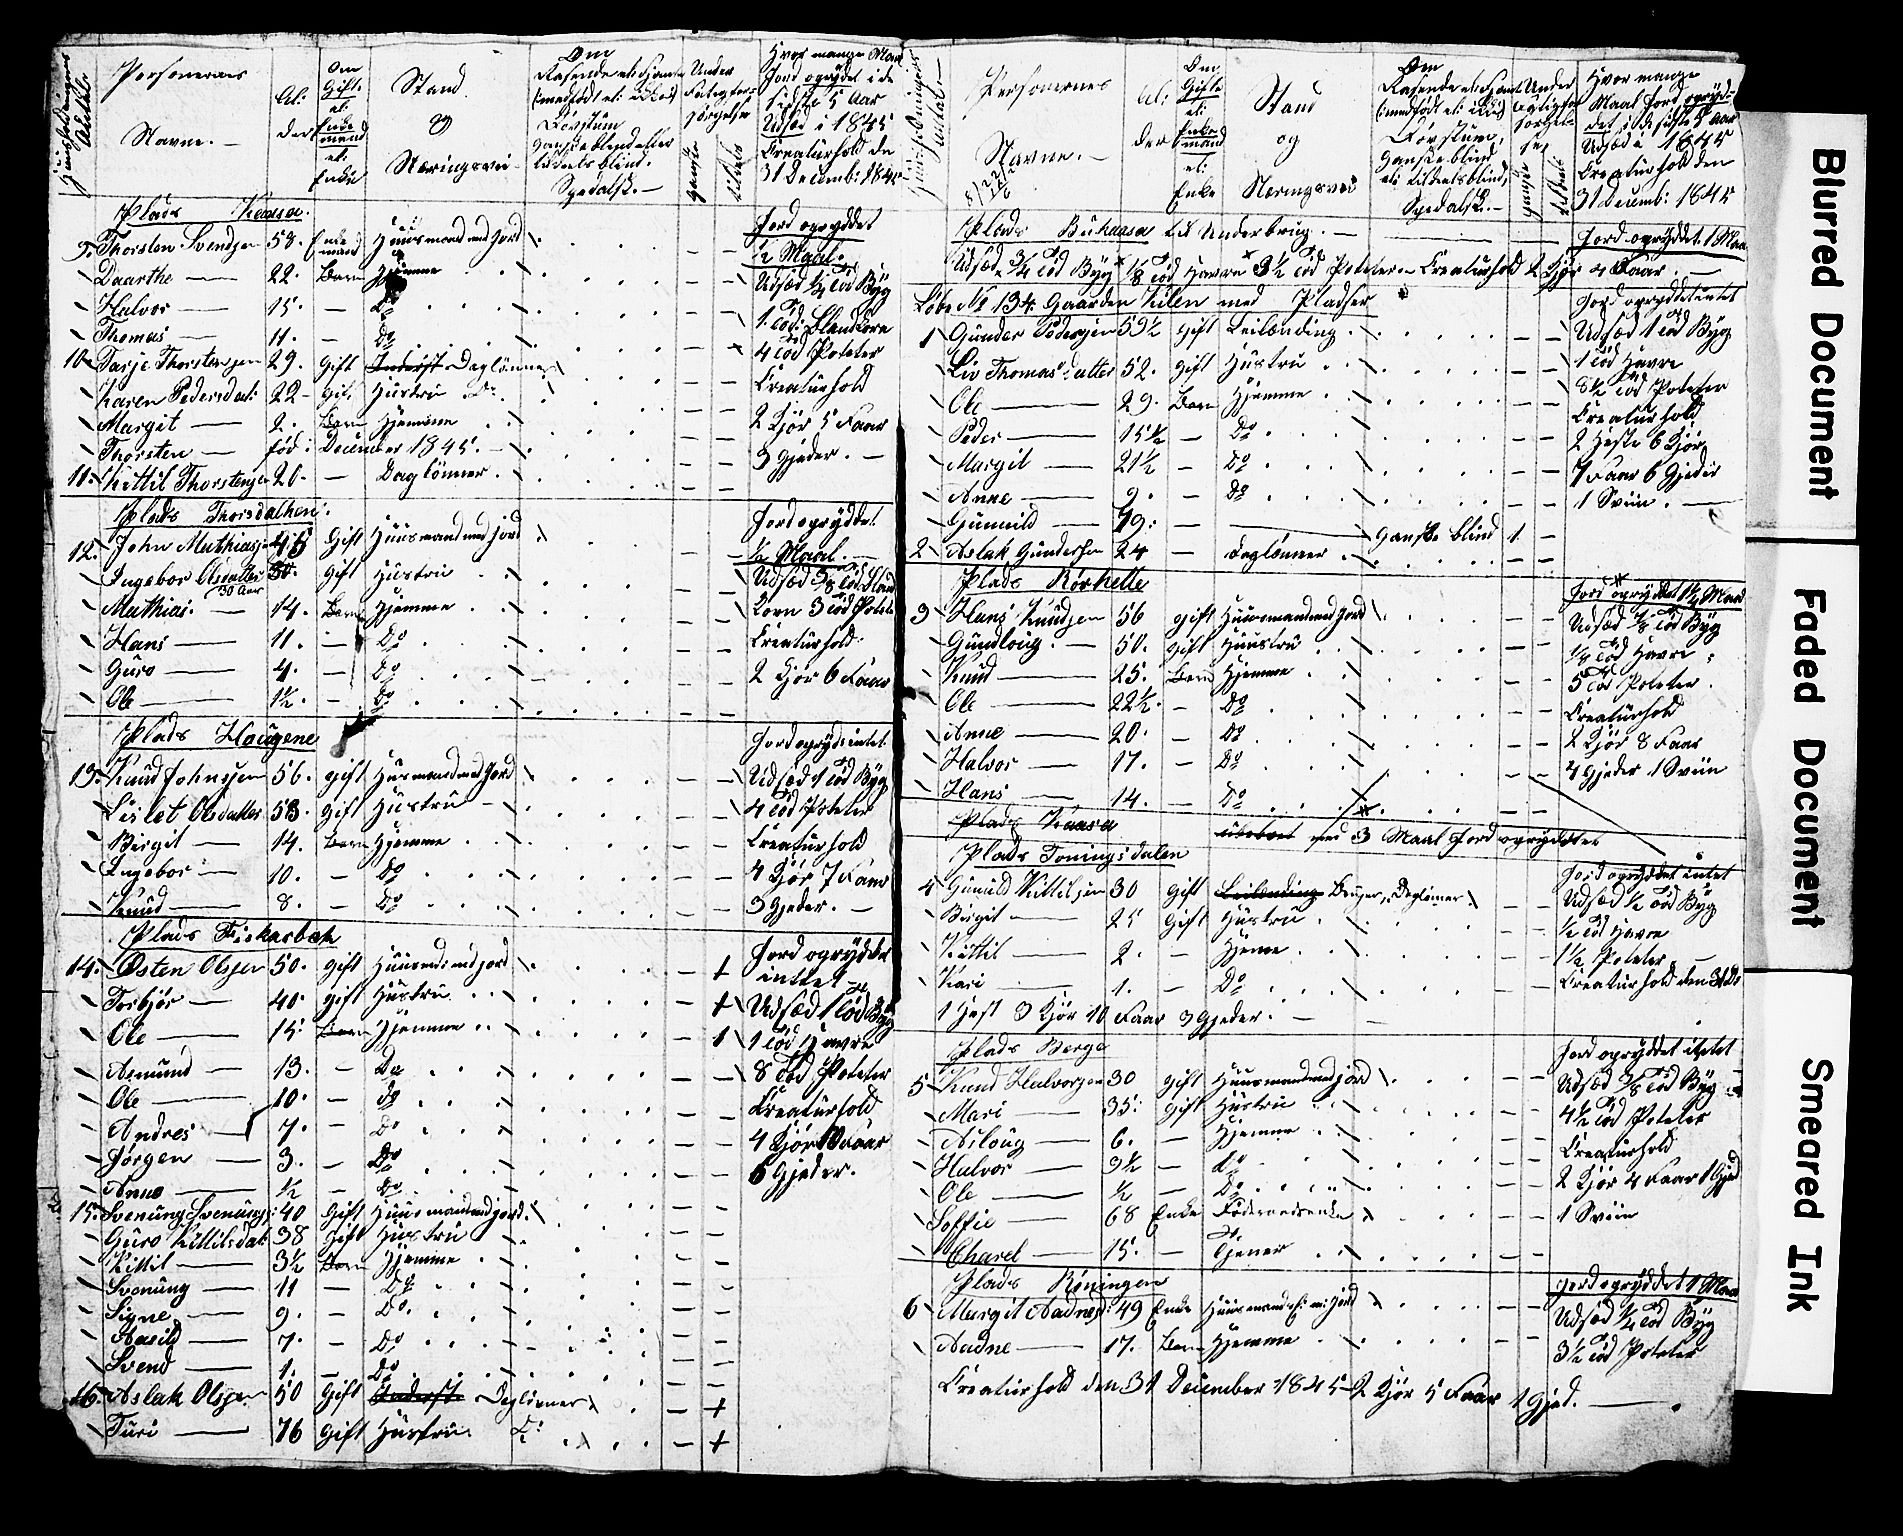 Personernes
Navne.
Al: der
Om Gifte el: Enke mand el: Enke
Stand og Næringsvei
Under
Hvor mange Maal Jord opryddet i de sidste 5 Aar
Udsæd i 1845
Creaturhold den 31 Decemb: 1845
Plads Kaasa.
9. Thorsten Svendsen 58. Enke mand Huusmand med Jord
Daarthe 22. Barn Hjemme
Halvor 15. – Do
Thomas 11. – Do
10 Tarje Thorstensen 29. Gift Inderst Daglönner
Karen Pedersdat: 22 Gift Hustrü Do
Margit 2. Barn Hjemme
Thorsten fød i December 1845.
11. Kittil Thorstensen 26. – Daglönner
Jord opryddet
½ Maal.
Udsæd ¼ Tød Byg
1. Tød: Blandkorn
4 Tød Poteter
Creaturhold
2 Kjör 5 Faar
3 Gjeder.
Plads Thorsdalhen.
12. John Mathiasen 45 Gift Huusmand med Jord
Ingebor Olsdatter 30 Aar Gift Hustrü
Mathias 14. Barn Hjemme
Hans 11. – Do
Guro 4. – Do
Ole 1½. – Do
Jord opryddet
½ Maal.
Udsæd ⅜ Tød Bland
Korn 3 Tød Poteter
Creaturhold
2 Kjör 6 Faar
Plads Hougene
13. Knud Johnsen 56. gift Husmand med Jord
Lislet Olsdatter 53 gift Hustrü
Birgit 14. Barn Hjemme
Ingebor 10. – Do
Knud 8. – Do
Jord opryd: intet
Udsæd 1 Tød Byg
4 Tød Poteter
Creaturhold
4 Kjör 7 Faar
3 Gjeder.
Plads Fiskarbek
14. Østen Olsen 50. gift Huusmd: med Jord
Torbjör 40. gift Hustrü
Ole 15: Barn Hjemme
Asmund 13. – Do
Ole 10. – Do
Andres 7. – Do
Jørgen 3. – Do
Anne ½ – Do
15. Svenüng Svenüngs: 40 Gift Huusmand med Jord.
Guro Kittilsdat: 38 Gift Hustrü
Kittil 3½ Barn Hjemme
Svenüng 11 – Do
Signe 9. – Do.
Aasild 7. – Do
Svend 1. – Do
16. Aslak Olsen 50 Gift Inderst. Daglönner
Turi 76 Gift Hüstrü Do
Jord opryddet
intet
Udsæd 1 Tød Byg
1 Tød Havre
8 Tød Poteter
Creaturhold
4 Kjör Faar
6 Gjeder.
Personernes
Navne.
Al: der
Om Gifte el: Enke mand el: Enke
Stand og Næringsvei
Hvor mange
Maal Jord opryd-
det i de sidste 5 Aar
Udsæd i 1845
Creaturhold den
31 Decemb: 1845
Plads Buhaasa til Underbrug.
Jord opryddet 1 Maal
Udsæd ¾ Tød Byg ⅛ Tød Havre 3½ Tød Poteter Creaturhold 2 Kjör 4 Faar
Løbe No 134 Gaarden Kilen med Pladser
1 Gunder Pedersen 59½ gift Leilænding
Liv Thomasdatter 52. gift Hustru
Ole 29. Barn Hjemme
Peder 15½ – Do
Margit 21½ – Do
Anne 9. – Do
Gunnild 79: – Ganske blind 1.
2 Aslak Gundersen 24 – Daglönner
Jord opryddet intet
Udsæd 1 Tød Byg
1 Tød Havre
8½ Tød Poteter
Creaturhold
2 Heste 6 Kjör
7 Faar 6 Gjeder
1 Sviin.
Plads Rørhelle
3 Hans Knudsen 56 gift Huusmand med Jord
Gundloug. 50. gift Huustrü
Knud 25. Barn Hjemme
Ole 22½. – Do
Anne 20. – Do
Halvor 17. – Do
Hans 14. – Do
Jord opryddet 1½ Maal
Udsæd ⅜ Tød Byg
⅛ Tød Havre
5 Tød Poteter.
Creaturhold
2 Kjör 8 Faar
4 Gjeder 1 Sviin
Plads Kaasa ubeboet med 3 Maal Jord opryddet
Plads Toningsdalen
4 Gunuld Kittilsen 30 Gift Leilænding Bruger, Daglönner
Birgit 25 Gift Hustrü
Kittil 2. – Hjeme
Kari 1. – Do
1 Hest 3 Kjör 10 Faar 3 Gjeder.
Jord opryddet intet
Udsæd ½ Tød Byg
½ Tød Havre
1½ Poteter
Creaturhold den 31 De
Plads Berge
5 Knud Halvorsen 30 gift Huusmand med Jord
Mari 35: gift Hustrü
Asloüg 6. – Hjemme
Halvor 3½ – Do
Ole ½ – Do
Soffie 68 Enke Föderaadsenke
Charel 15. – Tjener
Jord opryddet intet
Udsæd ⅜ Tød Byg
4½ Tød Poteter
Creaturhold
2 Kjör 4 Faar 1 Gjed
1 Sviin
Plads Røningen
6 Margit Aadnes: 49 Enke Huusmand: m: Jord
Aadne 17. Barn Hjemme
Jord opryddet 1 Maal
Udsæd ¼ Tød Byg
3½ Tød Poteter
Creaturhold den 31 December 1845 2 Kjör 5 Faar 1 Gjed.
Blurred Document
Faded Document
Smeared Ink